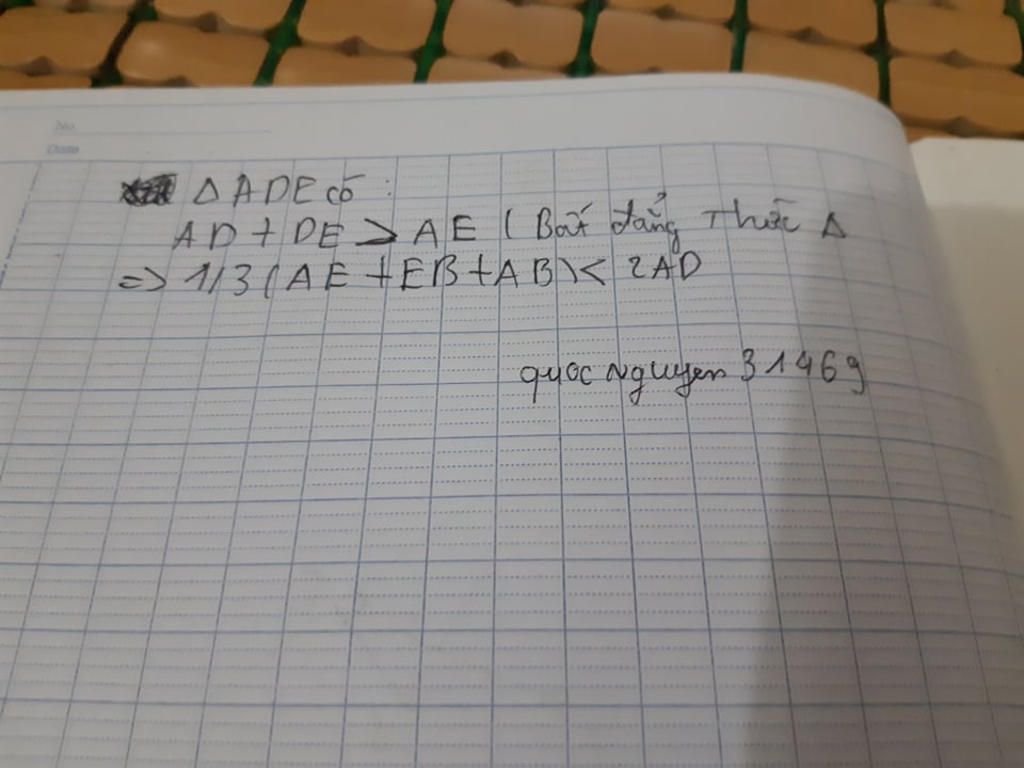 No.
Date
Δ ADE có :
AD + DE > AE ( Bất đẳng Thức Δ
=> 1/3 ( AE + EB + AB ) < 2AD
quoc nguyen 31469